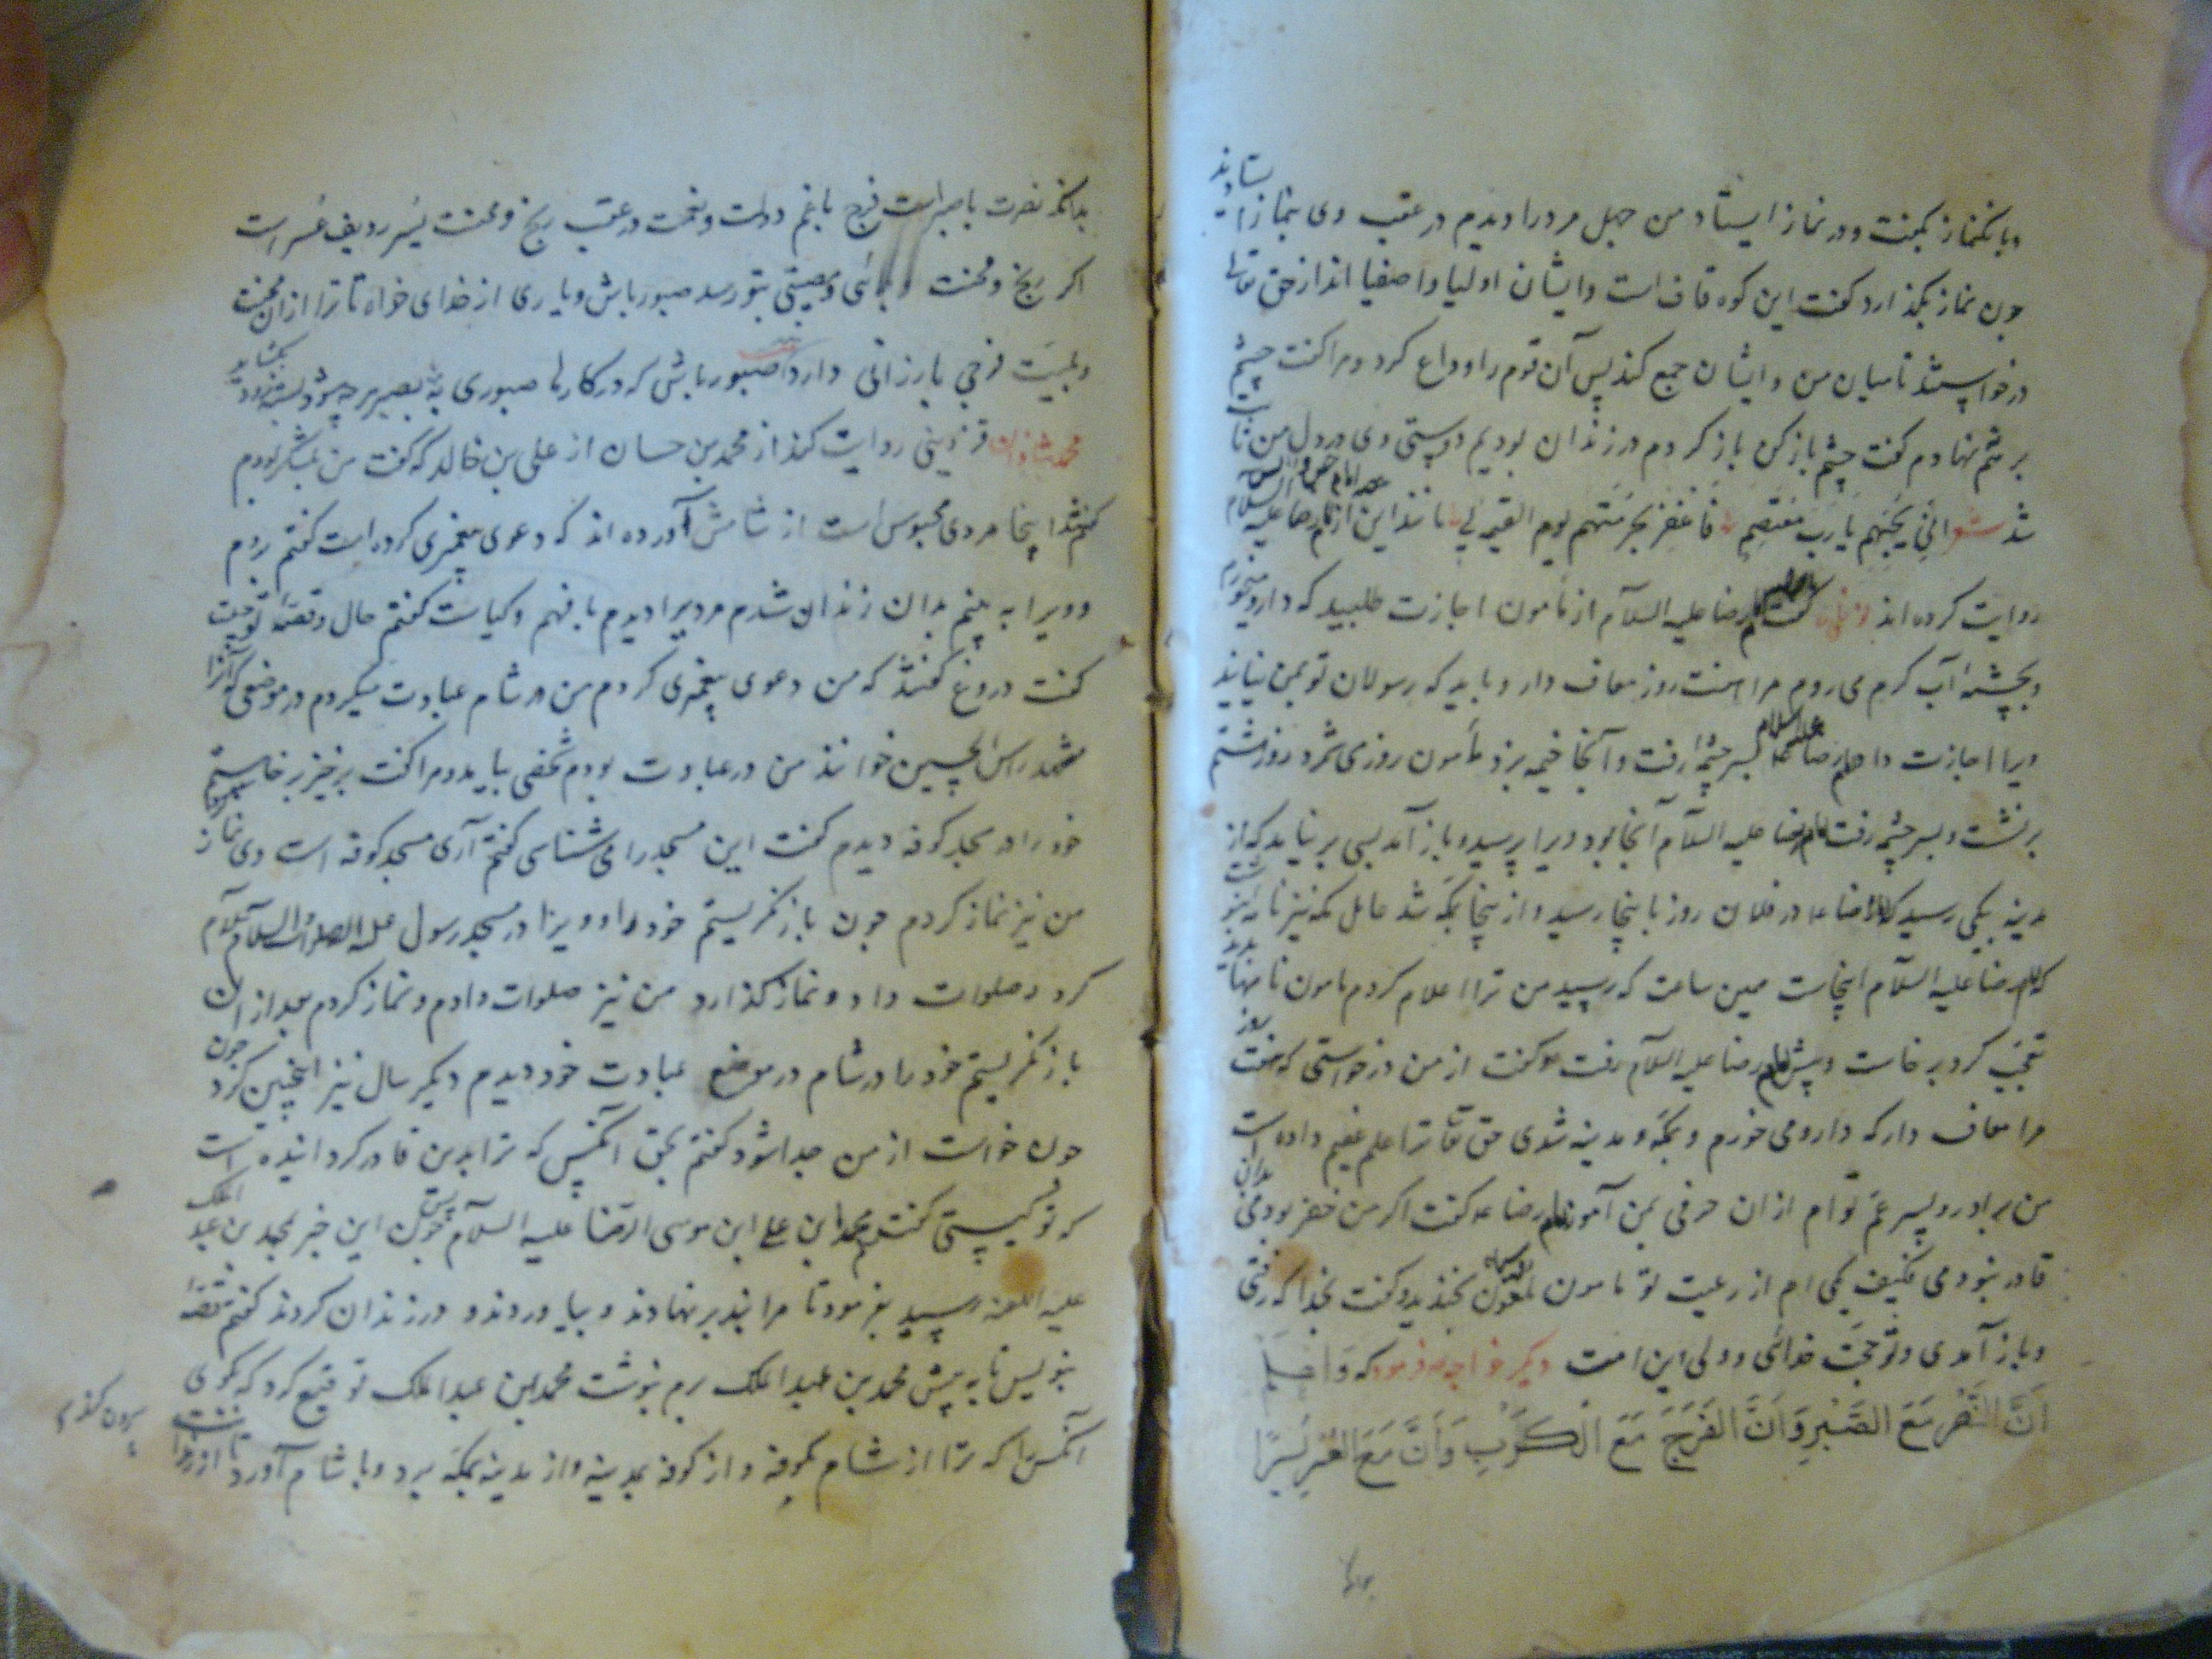 وبانکنماز بکفت ودر نماز ایستاد من چهل مرد را دیدم در عقب وی بنماز ایستادند
چون نماز بگذارد کفت این کوه قاف است وایشان اولیا واصفیا اند از حق تعالی
درخواستند تا میان من وایشان جمع کند پس آن قوم را وداع کرد ومرا کفت چشم
برهم نهادم کفت چشم باز کن باز کردم در زندان بودیم دوستی وی در دل من ثابت
شد شعر انی بحبهم یا رب معتصم فاغفر بحرمتهم یوم القیمه لی
روایت کرده اند کفت امام رضا علیه السلام از مامون اجازت طلبید که دارو میخورم
وبچشمه آب کرم می روم مرا هفت روز معاف دار وباید که رسولان تو بمن نیایند
ویرا اجازت داد امام رضا علیه السلام بسر چشمه رفت وآنجا خیمه بزد مأمون روزی شمرد روز هشتم
برنشت وبسر چشمه رفت امام رضا علیه السلام آنجا بود ویرا بپرسید وباز آمد بسی برنیاید که از
مدینه یکی رسید که امام رضا در فلان روز باینجا رسید واز ینجا بمکه شد عامل مکه نیز نامه بنوشت
که امام رضا علیه السلام اینجاست همین ساعت که رسید من ترا اعلام کردم مامون نامها بدید
تعجب کرد برخاست وپیش امام رضا علیه السلام رفت وکفت از من درخواستی که هفت روز
مرا معاف دار که دارو می خورم وبمکه ومدینه شدی حق تعا ترا علم عظیم داده است
من برادر وپسر عم توام ازان حرفی بمن آموز امام رضا کفت اکر من خضر بودمی بدان
قادر نبودمی فکیف یکی ام از رعیت تو مامون ملعون بخندید وکفت بخدا که رفتی
وباز آمدی وتو حجت خدائی وولی این امت دیکر خواجه فرمود که واعلم
ان النصر مع الصبر وان الفرج مع الکرب وان مع العسر یسرا
بدانکه نصرت با صبر است فرج با غم دولت ونعمت در عقب رنج ومحنت یسر ردیف عسر است
اکر رنج ومحنت وبلائی ومصیبتی بتو رسد صبور باش ویاری از خدای خواه تا ترا ازان محنت
وبلیت فرجی بارزانی دارد صبور باش که در کارها صبوری به بصبر هر چه شود بسته زود بکشاید
محمد شاذان قزوینی روایت کند از محمد بن حسان از علی بن خالد که کفت من بلشکر بودم
کفتند اینجا مردی محبوس است از شامش آورده اند که دعوی پیغمبری کرده است کفتم روم
وویرا به بینم بدان زندان شدم مردیرا دیدم با فهم وکیاست کفتم حال وقصه تو چیست
کفت دروغ کفتند که من دعوی پیغمبری کردم من در شام عبادت میکردم در موضعی که آنرا
مشهد راس الحسین خوانند من در عبادت بودم شخصی بیامد ومرا کفت برخیز برخاستم
خود را در مسجد کوفه دیدم کفت این مسجد را می شناسی کفتم آری مسجد کوفه است وی نماز کرد
من نیز نماز کردم چون باز نکریستم خود را وویرا در مسجد رسول علیه الصلوات والسلام سلام
کرد وصلوات داد ونماز کذارد من نیز صلوات دادم ونماز کردم بعد ازان
باز نکریستم خود را در شام در موضع عبادت خود دیدم دیکر سال نیز اینچنین کرد چون
چون خواست از من جدا شود کفتم بحق آنکس که ترا بدین قادر کردانیده است
که تو کیستی کفت محمد ابن علی ابن موسی الرضا علیه السلام چون این خبر بمحمد بن عبد الملک
علیه اللعنه رسید بفرمود تا مرا بند برنهادند وبیاوردند ودر زندان کردند کفتم قصه
بنویس تا به پیش محمد بن عبد الملک برم بنوشت محمد بن عبد الملک توقیع کرد که کوی
آنکس را که ترا از شام بکوفه واز کوفه بمدینه واز مدینه بمکه برد وبا شام آورد تا ازینجا
بیرون کند